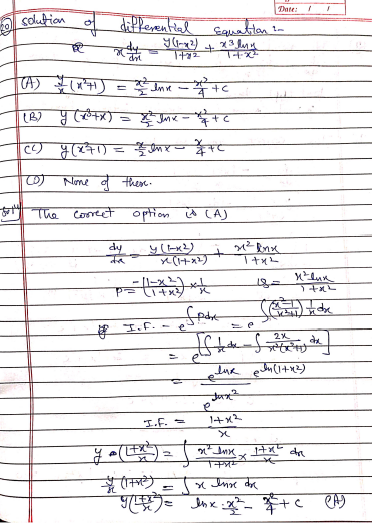 Date: / /
20) solution of differential equation :-
x dy/dx = y(1-x²)/1+x² + x³lnx/1+x²
(A) y/x (x²+1) = x²/2 lnx - x²/4 + c
(B) y (x³+x) = x²/2 lnx - x²/4 + c
(C) y (x²+1) = x²/2 lnx - x/4 + c
(D) None of these.
The correct option is (A)
dy/dx = y(1-x²)/x(1+x²) + x²lnx/1+x²
P = -(1-x²)/(1+x²) × 1/x = x²lnx/1+x²
I.F. = e^∫Pdx = e^∫(x²-1/x²+1) 1/x dx
= e^[∫1/x dx - ∫ dx]
= e^lnx e^ln(1+x²) / e^lnx²
I.F. = 1+x²/x
y (1+x²/x) = ∫ x²lnx/1+x² × 1+x²/x dx
y/x (1+x²) = ∫ x lnx dx
y(1+x²/x) = lnx · x²/2 - x²/4 + c (A)